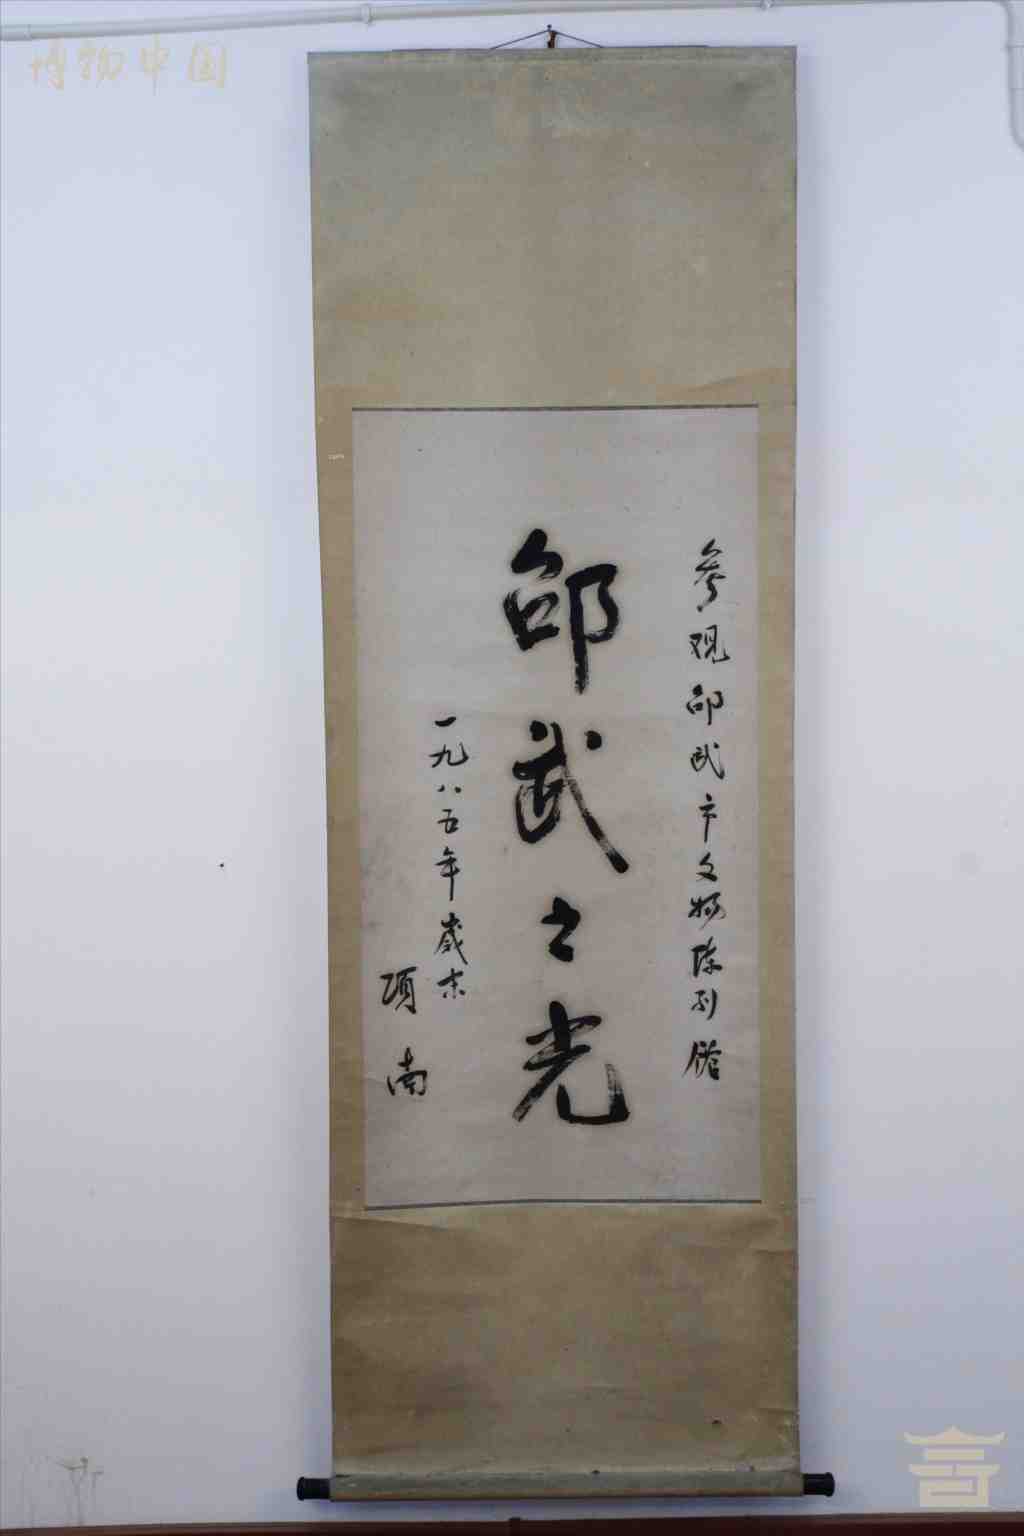 博物中国
参观邵武市文物陈列馆
邵武之光
一九八五年岁末
项南